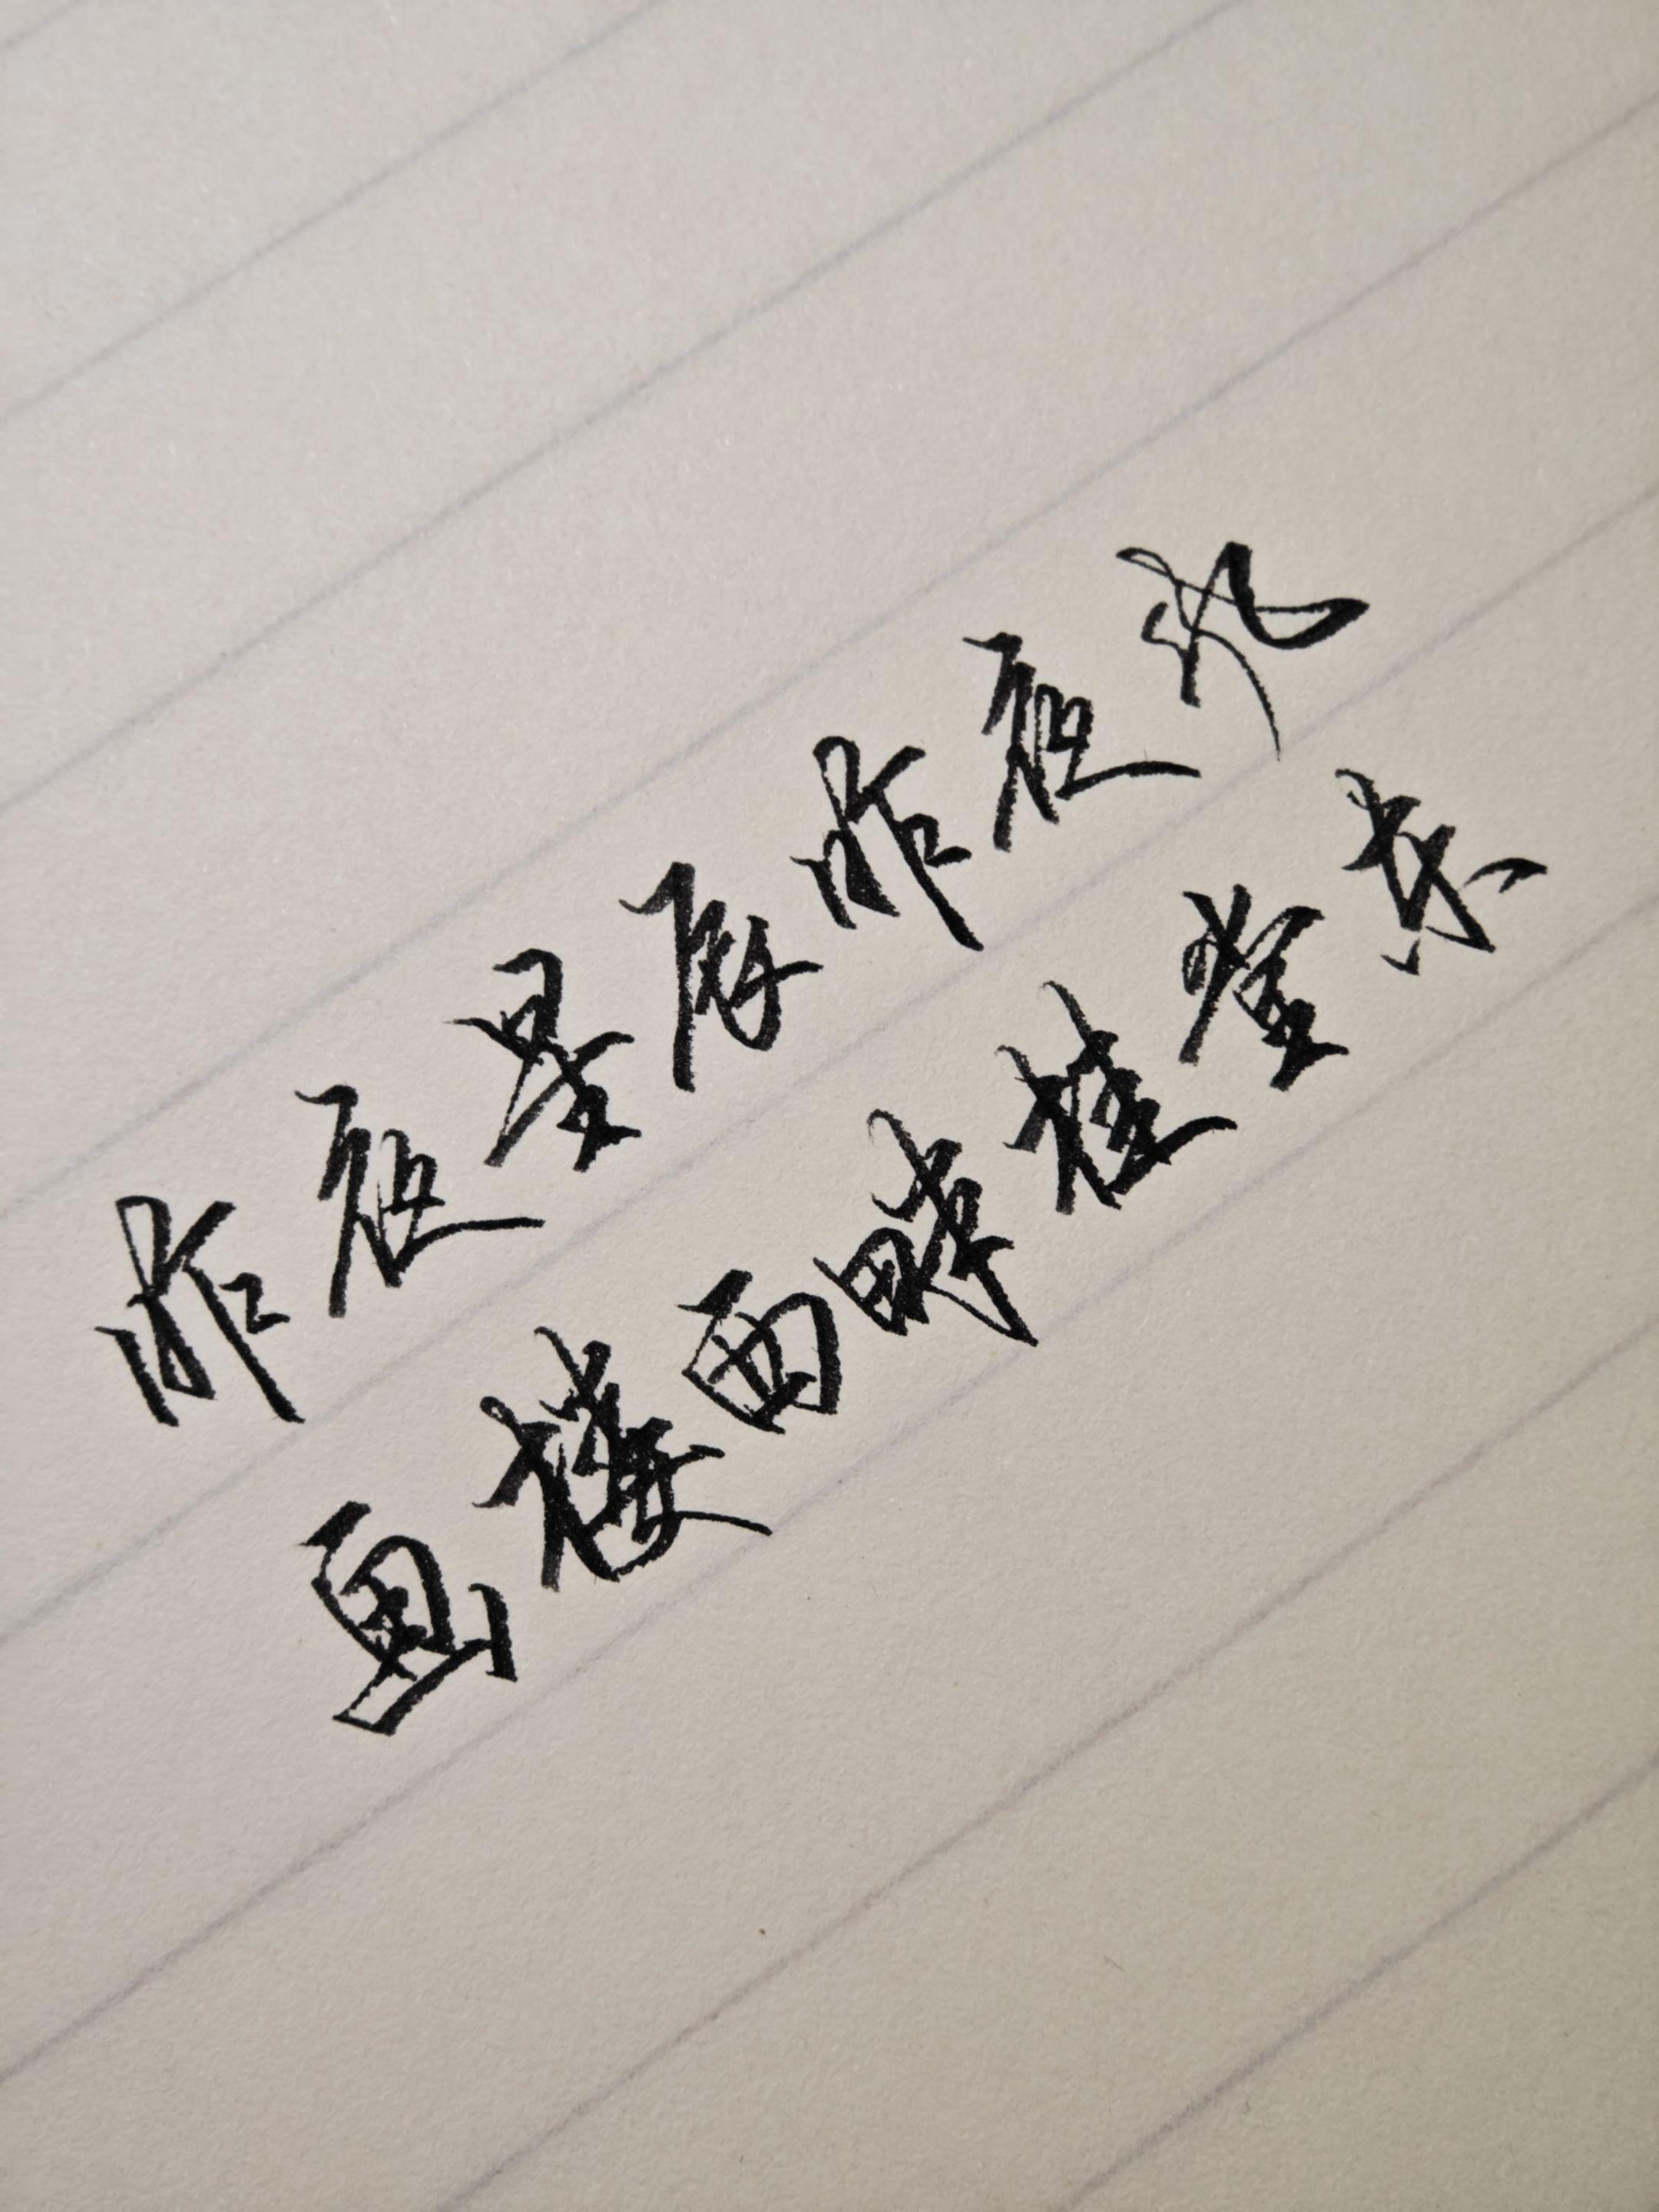 昨夜星辰昨夜风
画楼西畔桂堂东